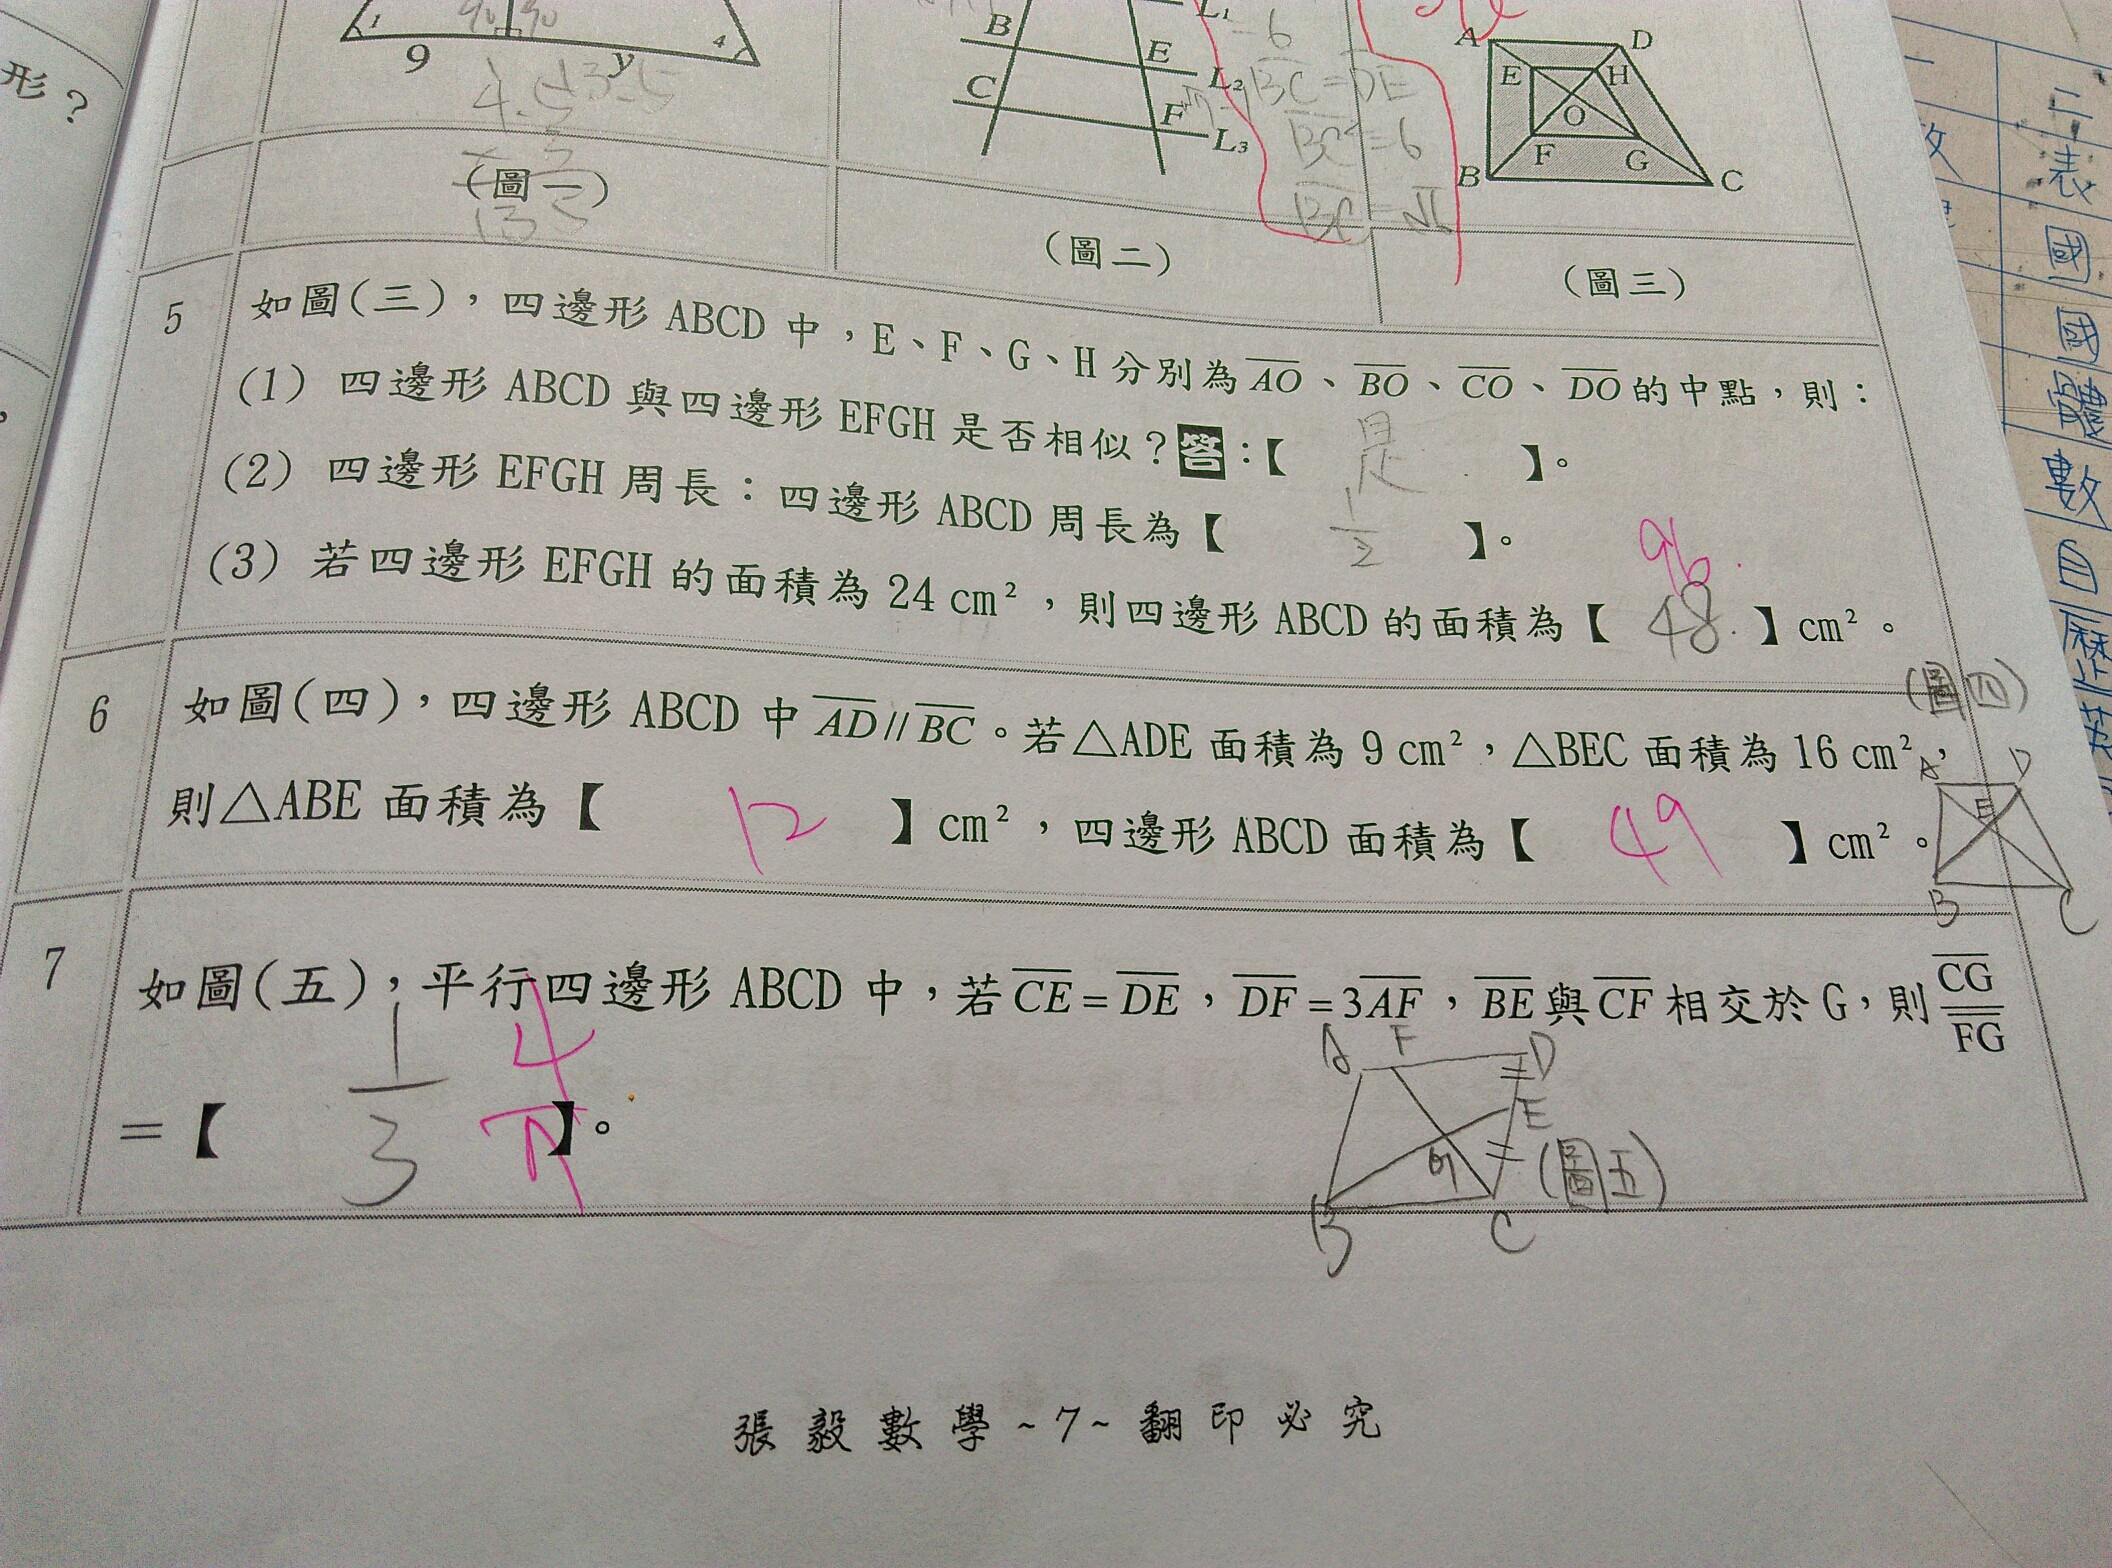 形？
1
90 90
4
9
y
B
E
C
F
L₁
L₂
L₃
=6
BC=DE
BC²=6
A
D
E
H
O
F
G
B
C
(圖一)
(圖二)
(圖三)
5 如圖(三)，四邊形 ABCD 中，E、F、G、H 分別為 AO、BO、CO、DO 的中點，則：
(1) 四邊形 ABCD 與四邊形 EFGH 是否相似？答：【 是 】。
(2) 四邊形 EFGH 周長：四邊形 ABCD 周長為【 1/2 】。
96
(3) 若四邊形 EFGH 的面積為 24 cm²，則四邊形 ABCD 的面積為【 48 】cm²。
(圖四)
6 如圖(四)，四邊形 ABCD 中 AD // BC。若△ADE 面積為 9 cm²，△BEC 面積為 16 cm²，
則△ABE 面積為【 12 】cm²，四邊形 ABCD 面積為【 49 】cm²。
A D
E
B C
7 如圖(五)，平行四邊形 ABCD 中，若 CE = DE，DF = 3AF，BE 與 CF 相交於 G，則 CG/FG
=【 1/3 】。
A F D
E
G
B C
(圖五)
張毅數學~7~翻印必究
二
表
國
國
數
自
歷
英